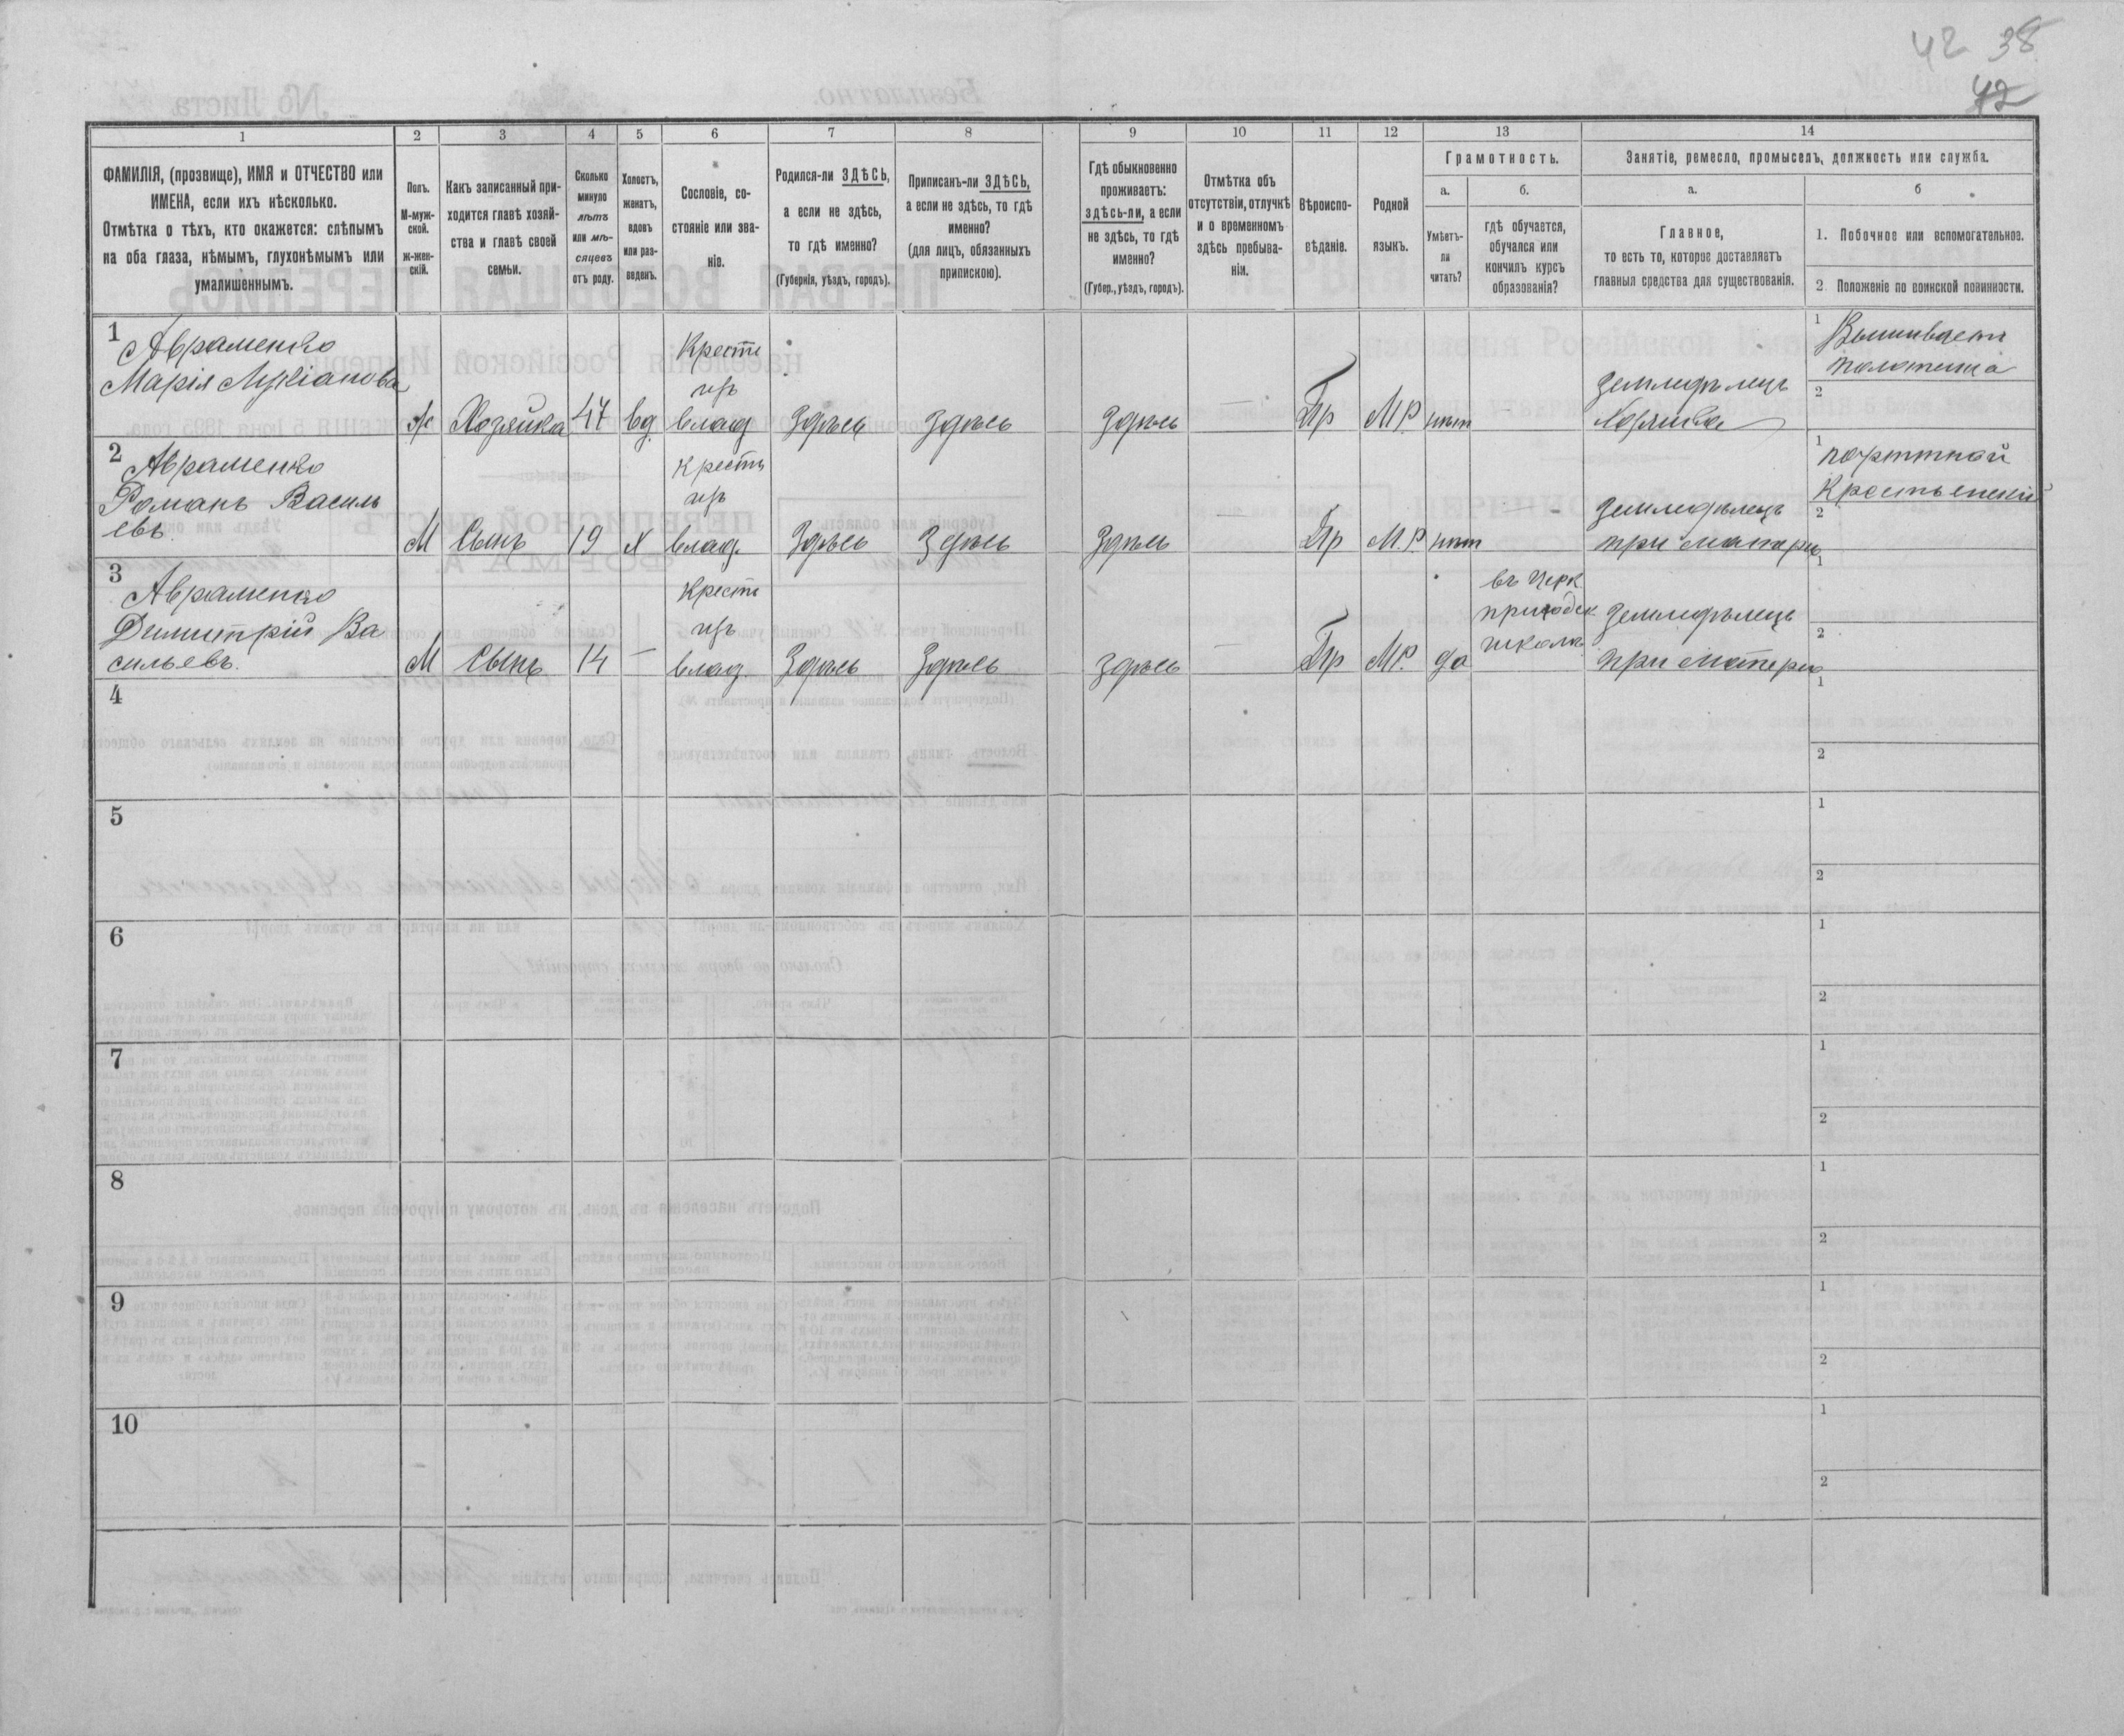 42 38
42
1
2
3
4
5
6
7
8
9
10
11
12
13
14
ФАМИЛІЯ, (прозвище), ИМЯ и ОТЧЕСТВО или
ИМЕНА, если ихъ нѣсколько.
Отмѣтка о тѣхъ, кто окажется: слѣпымъ
на оба глаза, нѣмымъ, глухонѣмымъ или
умалишеннымъ.
Полъ.
М-муж-
ской.
Ж-жен-
скій.
Какъ записанный при-
ходится главѣ хозяй-
ства и главѣ своей
семьи.
Сколько
минуло
лѣтъ
или мѣ-
сяцевъ
отъ роду.
Холостъ,
женатъ,
вдовъ
или раз-
веденъ.
Сословіе, со-
стояніе или зва-
ніе.
Родился-ли ЗДѢСЬ,
а если не здѣсь,
то гдѣ именно?
(Губернія, уѣздъ, городъ).
Приписанъ-ли ЗДѢСЬ,
а если не здѣсь, то гдѣ
именно?
(для лицъ, обязанныхъ
припискою).
Гдѣ обыкновенно
проживаетъ:
здѣсь-ли, а если
не здѣсь, то гдѣ
именно?
(Губер., уѣздъ, городъ).
Отмѣтка объ
отсутствіи, отлучкѣ
и о временномъ
здѣсь пребыва-
ніи.
Вѣроиспо-
вѣданіе.
Родной
языкъ.
Грамотность.
а.
б.
Умѣетъ-
ли
читать?
гдѣ обучается,
обучался или
кончилъ курсъ
образованія?
Занятіе, ремесло, промыселъ, должность или служба.
а.
б
Главное,
то есть то, которое доставляетъ
главныя средства для существованія.
1. Побочное или вспомогательное.
2. Положеніе по воинской повинности.
1
Авраменко
Марія Лукіанова
Ж Хозяйка 47 вд.
Крестн
изъ
влад
Здѣсь Здѣсь Здѣсь — Пр М.Р. нѣт —
Землидѣлецъ
Хозяика
1
Вышиваетъ
полотнища
2
2
Авраменко
Романъ Василь
евъ.
М Сынъ 19 х
Крестн
изъ
влад.
Здѣсь Здѣсь Здѣсь — Пр М.Р. нѣт —
Землидѣлецъ
при матери
1
портной
Крестьенскій
2
3
Авраменко
Димитрій Ва
сильевъ.
М Сынъ 14 —
Крестн
изъ
влад.
Здѣсь Здѣсь Здѣсь — Пр М.Р. да
въ Церк
приходск.
школѣ
Землидѣлецъ
при матери
1
2
4
1
2
5
1
2
6
1
2
7
1
2
8
1
2
9
1
2
10
1
2